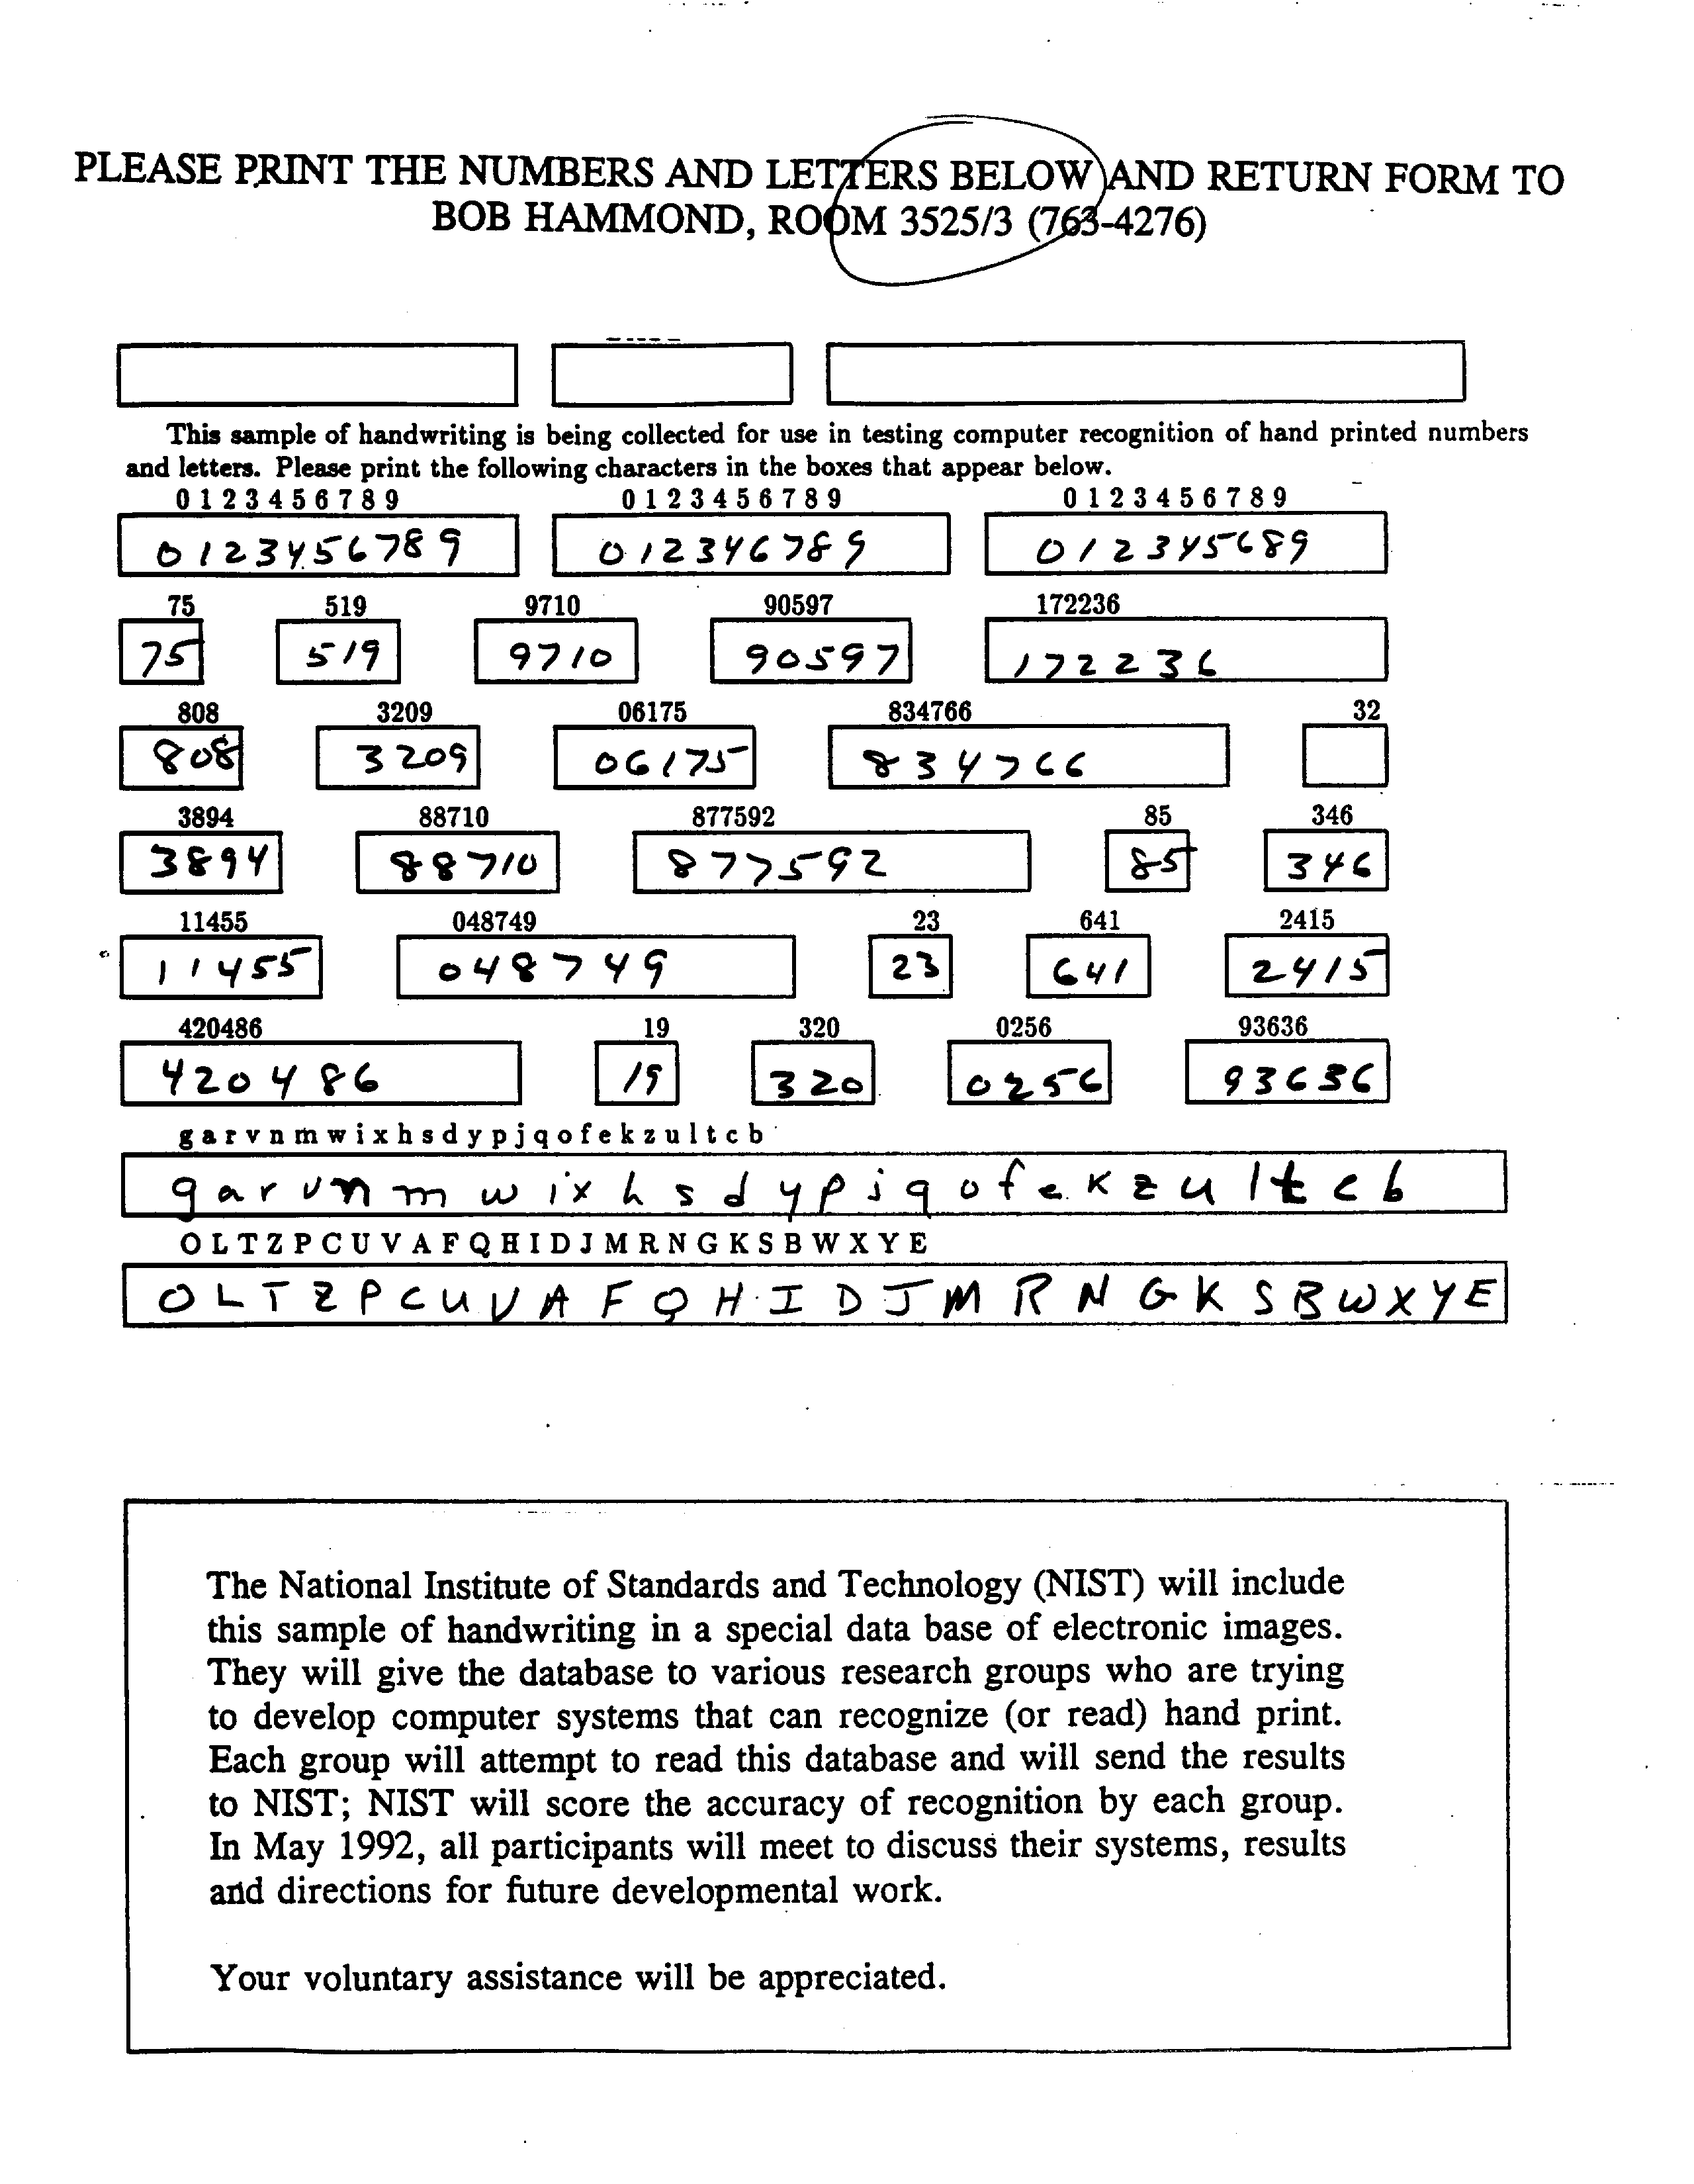 PLEASE PRINT THE NUMBERS AND LETTERS BELOW AND RETURN FORM TO
BOB HAMMOND, ROOM 3525/3 (763-4276)
This sample of handwriting is being collected for use in testing computer recognition of hand printed numbers
and letters. Please print the following characters in the boxes that appear below.
0 1 2 3 4 5 6 7 8 9 0 1 2 3 4 5 6 7 8 9 0 1 2 3 4 5 6 7 8 9
0123456789 012346789 012345689
75 519 9710 90597 172236
75 519 9710 90597 172236
808 3209 06175 834766 32
808 3209 06175 834766
3894 88710 877592 85 346
3894 88710 877592 85 346
11455 048749 23 641 2415
11455 048749 23 641 2415
420486 19 320 0256 93636
420486 19 320 0256 93636
g a r v n m w i x h s d y p j q o f e k z u l t c b
g a r v n m w i x h s d y p j q o f e k z u l t c b
O L T Z P C U V A F Q H I D J M R N G K S B W X Y E
O L T Z P C U V A F Q H I D J M R N G K S B W X Y E
The National Institute of Standards and Technology (NIST) will include
this sample of handwriting in a special data base of electronic images.
They will give the database to various research groups who are trying
to develop computer systems that can recognize (or read) hand print.
Each group will attempt to read this database and will send the results
to NIST; NIST will score the accuracy of recognition by each group.
In May 1992, all participants will meet to discuss their systems, results
and directions for future developmental work.
Your voluntary assistance will be appreciated.